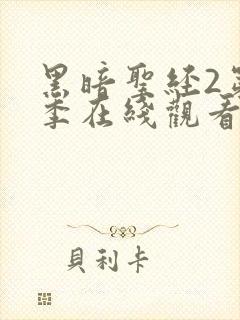 黑暗聖经2第
季在綫觀看
貝利卡